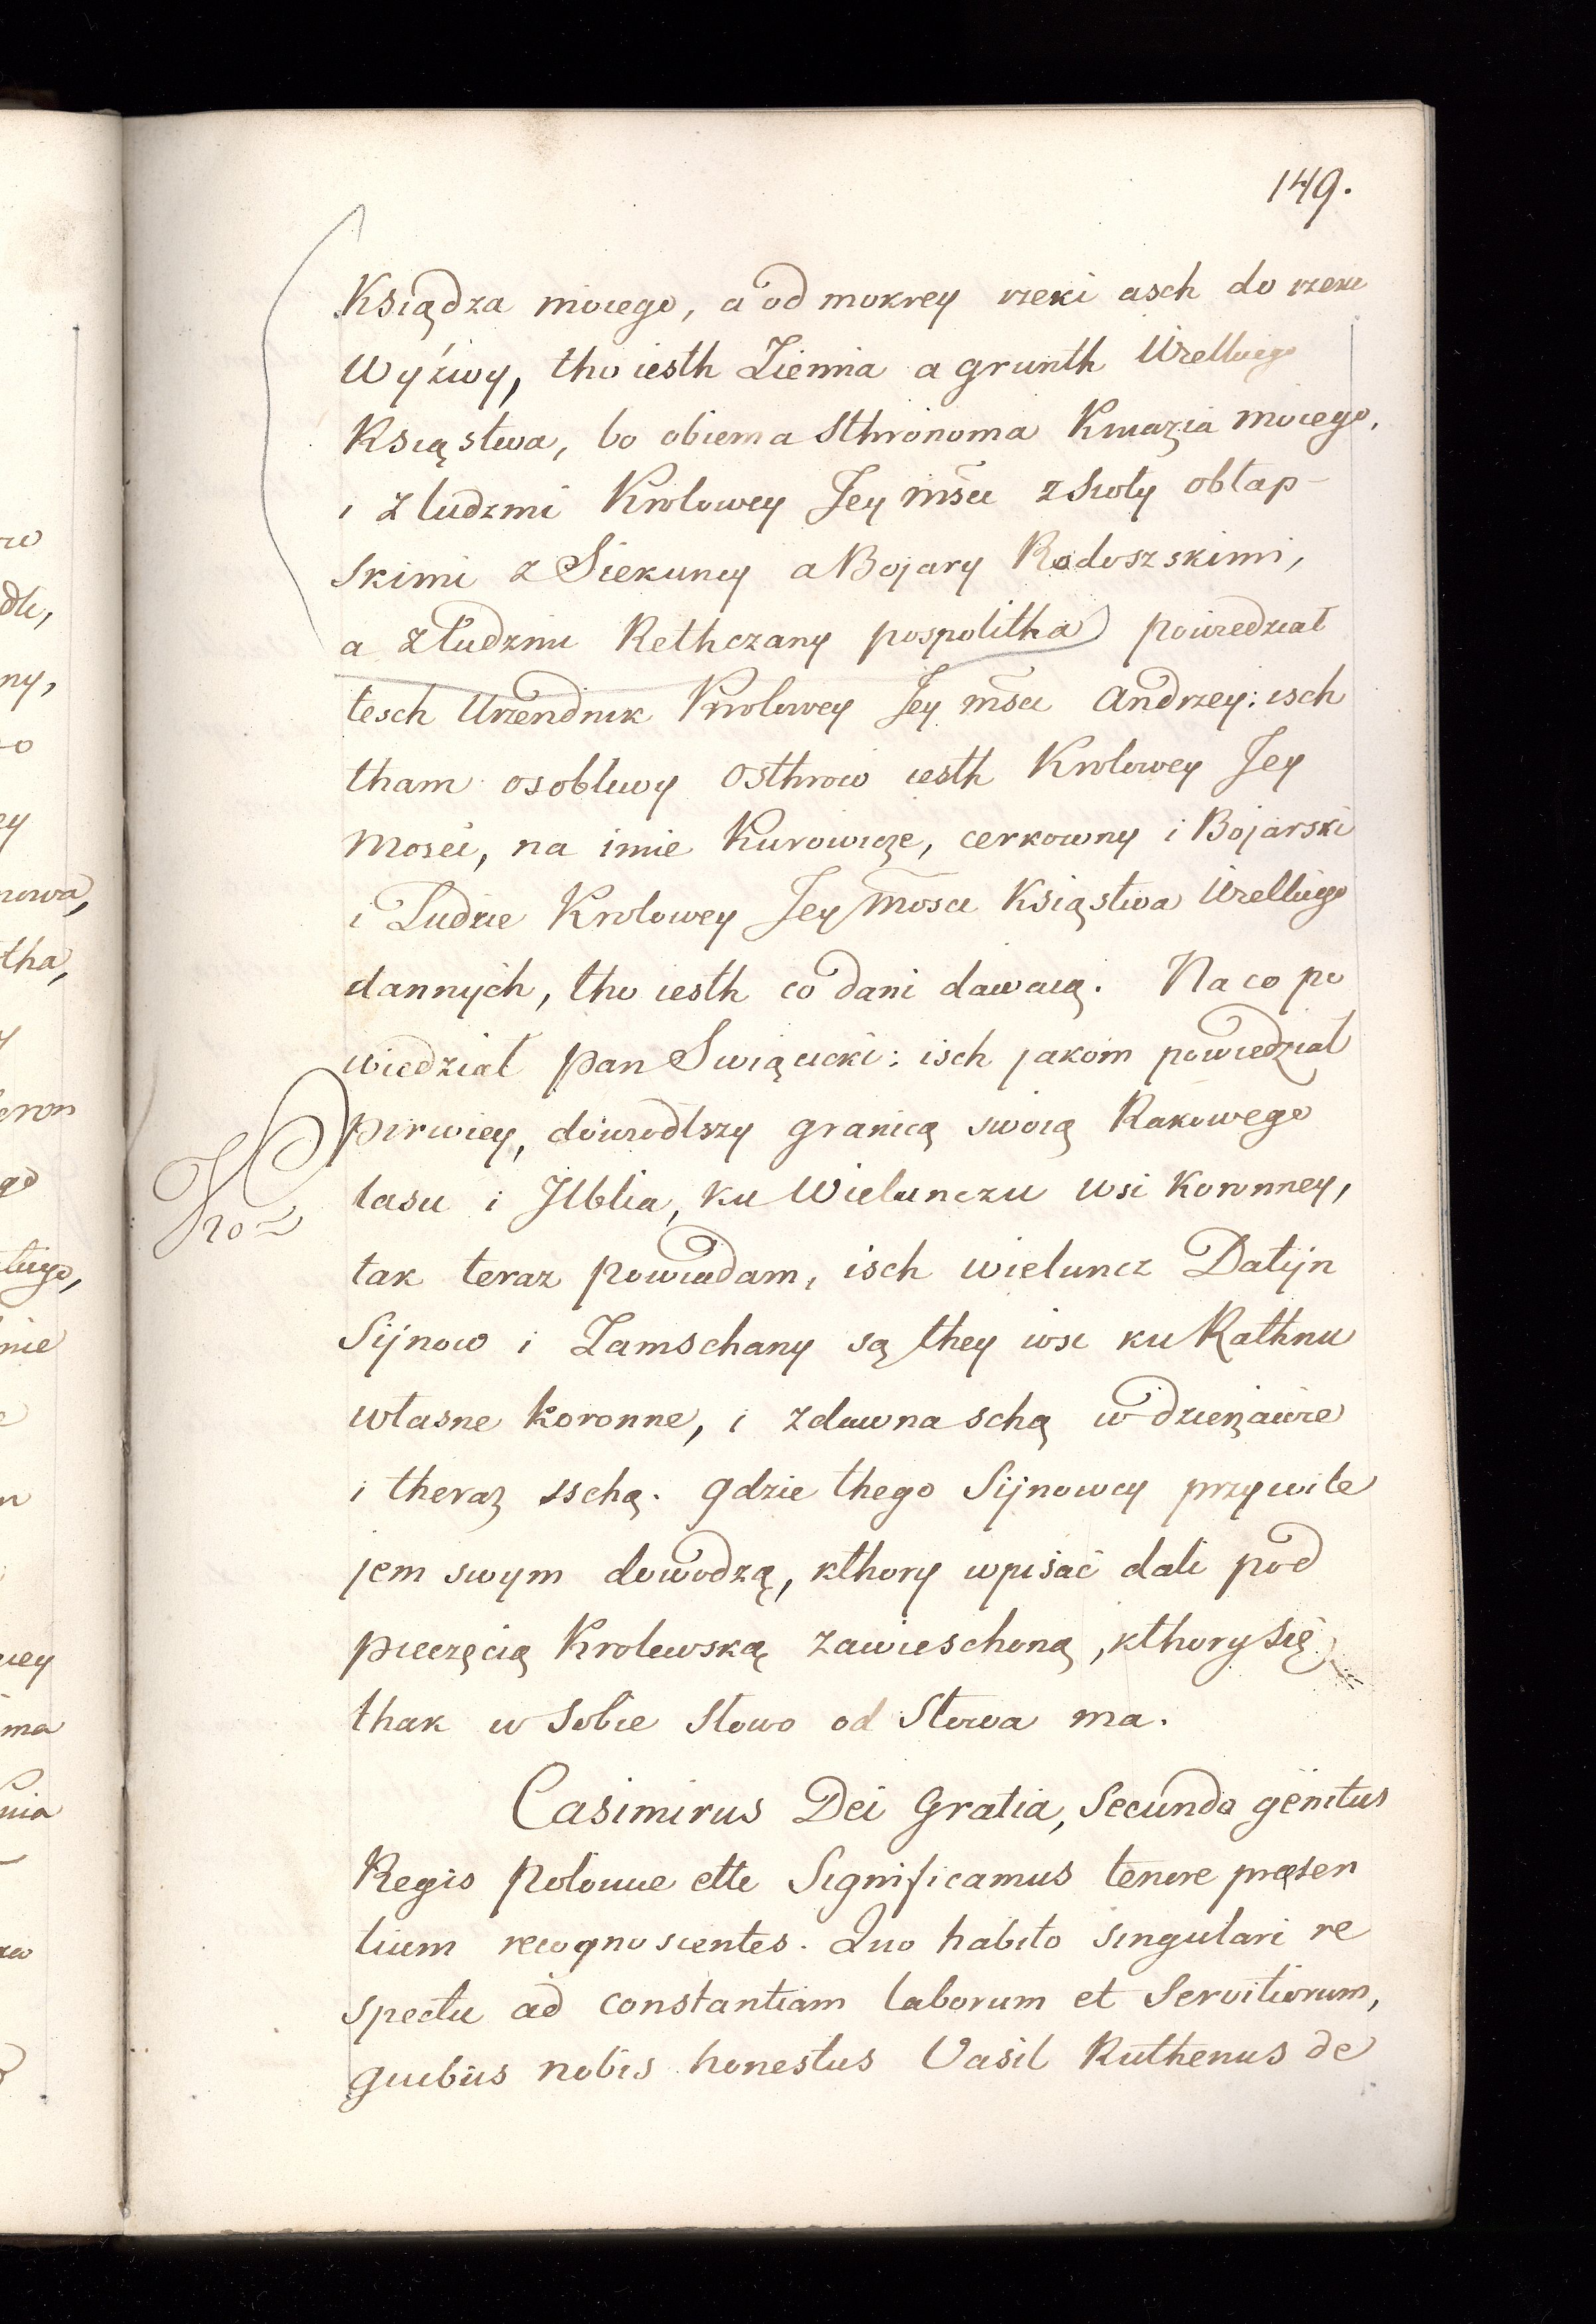 149.
Ksiądza moiego, a od mokrey rzeki asch do rzeki
Wyżwy, tho iesth Ziemia a grunth Wielkiego
Ksiąstwa, bo obiema Sthronoma Kniazia moiego,
i z ludzmi Krolowey Jey mści z Sioły obłap-
skimi z Siekuncy a Bojary Radoszskimi,
a z ludzmi Rethczany pospolitha powiedział
tesch Urzendnik Krolowey Jey mści Andrzey: isch
tham osobliwy Osthrow iesth Krolowey Jey
Mości, na imie Kurowicze, cerkowny i Bojarski
i Ludzie Krolowey Jey Mości Ksiąstwa Wielkiego
dannych, tho iesth co dani dawaią. Na co po
wiedział pan Swiącicki: isch jakom powiedział
pirwiey, dowiodlszy granicą swoią Rakowego
lasu i Jlblia, ku Wielunczu wsi Koronney,
tak teraz powiadam, isch wieluncz Datijn
Sijnow i Zamschany są they wsi ku Rathnu
własne koronne, i zdawna schą w dzierżawie
i theraz sschą. gdzie thego Sijnowcy przywile
jem swym dowodzą, kthory wpisać dali pod
pieczęcią Krolewską zawieschoną, kthory się
thak w sobie słowo od słowa ma.
Casimirus Dei Gratia, Secundo genitus
Regis Polonie ettc Significamus tenore præsen
tium recognoscentes. Quo habito singulari re
spectu ad constantiam laborum et Servitiorum,
quibus nobis honestus Vasil Ruthenus de